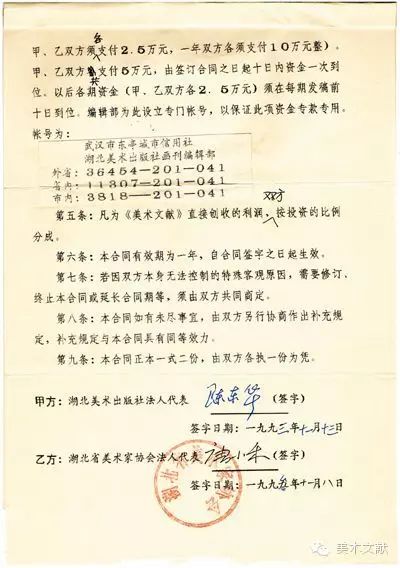 各
甲、乙双方须支付2.5万元，一年双方各须支付10万元整）。
甲、乙双方支付5万元，由签订合同之日起十日内资金一次到
共
位。以后各期资金（甲、乙方各2.5万元）须在每期发稿前
十日到位。编辑部为此设立专门帐号，以保证此项资金专款专用。
帐号为：
武汉市东亭城市信用社
湖北美术出版社画刊编辑部
外省：36454—201—041
省内：11307—201—041
市内：3818—201—041
双方
第五条：凡为《美术文献》直接创收的利润，按投资的比例
分成。
第六条：本合同有效期为一年，自合同签字之日起生效。
第七条：若因双方本身无法控制的特殊客观原因，需要修订、
终止本合同或延长合同期等，须由双方共同商定。
第八条：本合同如有未尽事宜，由双方另行协商作出补充规
定，补充规定与本合同具有同等效力。
第九条：本合同正本一式二份，由双方各执一份为凭。
甲方：湖北美术出版社法人代表 陈东华 （签字）
签字日期：一九九三年十一月十三日
乙方：湖北省美术家协会法人代表 唐小禾 （签字）
签字日期：一九九年十一月八日
美术文献